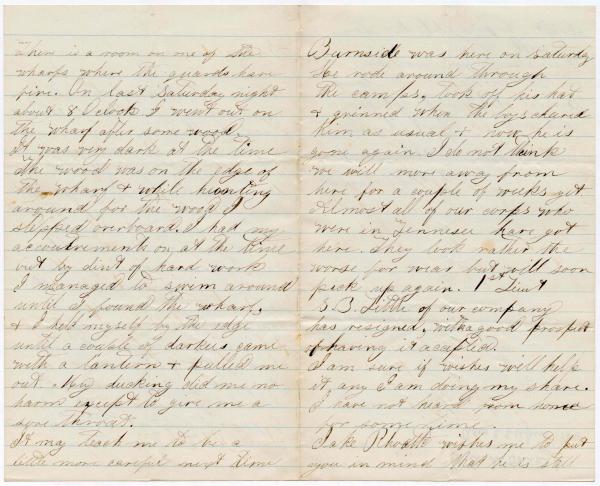 There is a room on one of the
wharfs where the guards have
fire. On last Saturday night
about 8 Oclock I went out on
the wharf after some wood.
It was very dark at the time
The wood was on the edge of
the wharf & while hunting
around for the wood I
stepped overboard. I had my
accoutrements on at the time
but by dint of hard work
I managed to swim around
until I found the wharf,
& I held myself by the edge
until a couple of darkies came
with a lantern & pulled me
out. My ducking did me no
harm except to give me a
sore throat.
It may teach me to be a
little more careful next time
Burnside was here on Saturday
He rode around through
the camps, took off his hat
& grinned when the boys cheared
him as usual & now he is
gone again. I do not think
we will move away from
here for a couple of weeks yet
Almost all of our corps who
were in Tennesee have got
here. They look rather the
worse for wear but will soon
pick up again. 1st Lieut
S. B. Little of our company
has resigned, with a good prospect
of having it accepted.
I am sure if wishes will help
it any I am doing my share.
I have not heard from home
for some time.
Jake wishes me to put
you in mind that he is still